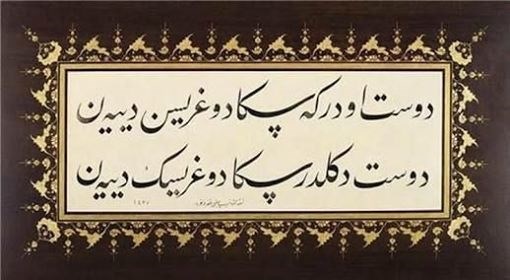 دوست اودر که سکا دوغریسین دییه‌ن
دوست دکلدر سکا دوغریسک دییه‌ن